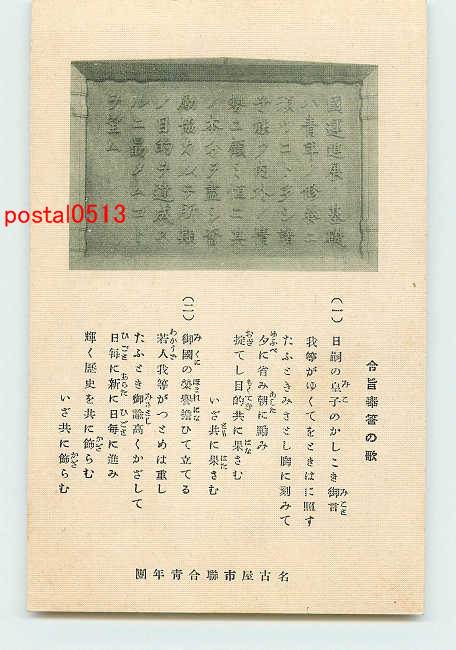 國運進展ノ基礎
ハ青年ノ修養ニ
須ツコト多シ諸
子能ク内外ノ情
勢ニ顧ミ恒ニ其
ノ本分ヲ盡シ奮
勵協力以テ所期
ノ目的ヲ達成ス
ルニ勗メムコト
ヲ望ム
postal0513
令旨奉答の歌
(一) 日嗣の皇子のかしこき御言
我等がゆくてをときはに照す
たふときみさとし胸に刻みて
夕に省み朝に勵み
掟てし目的共に果さむ
いざ共に果さむ
(二) 御國の榮譽擔ひて立てる
若人我等がつとめは重し
たふとき御諭高くかざして
日毎に新に日毎に進み
輝く歷史を共に飾らむ
いざ共に飾らむ
名古屋市聯合青年團